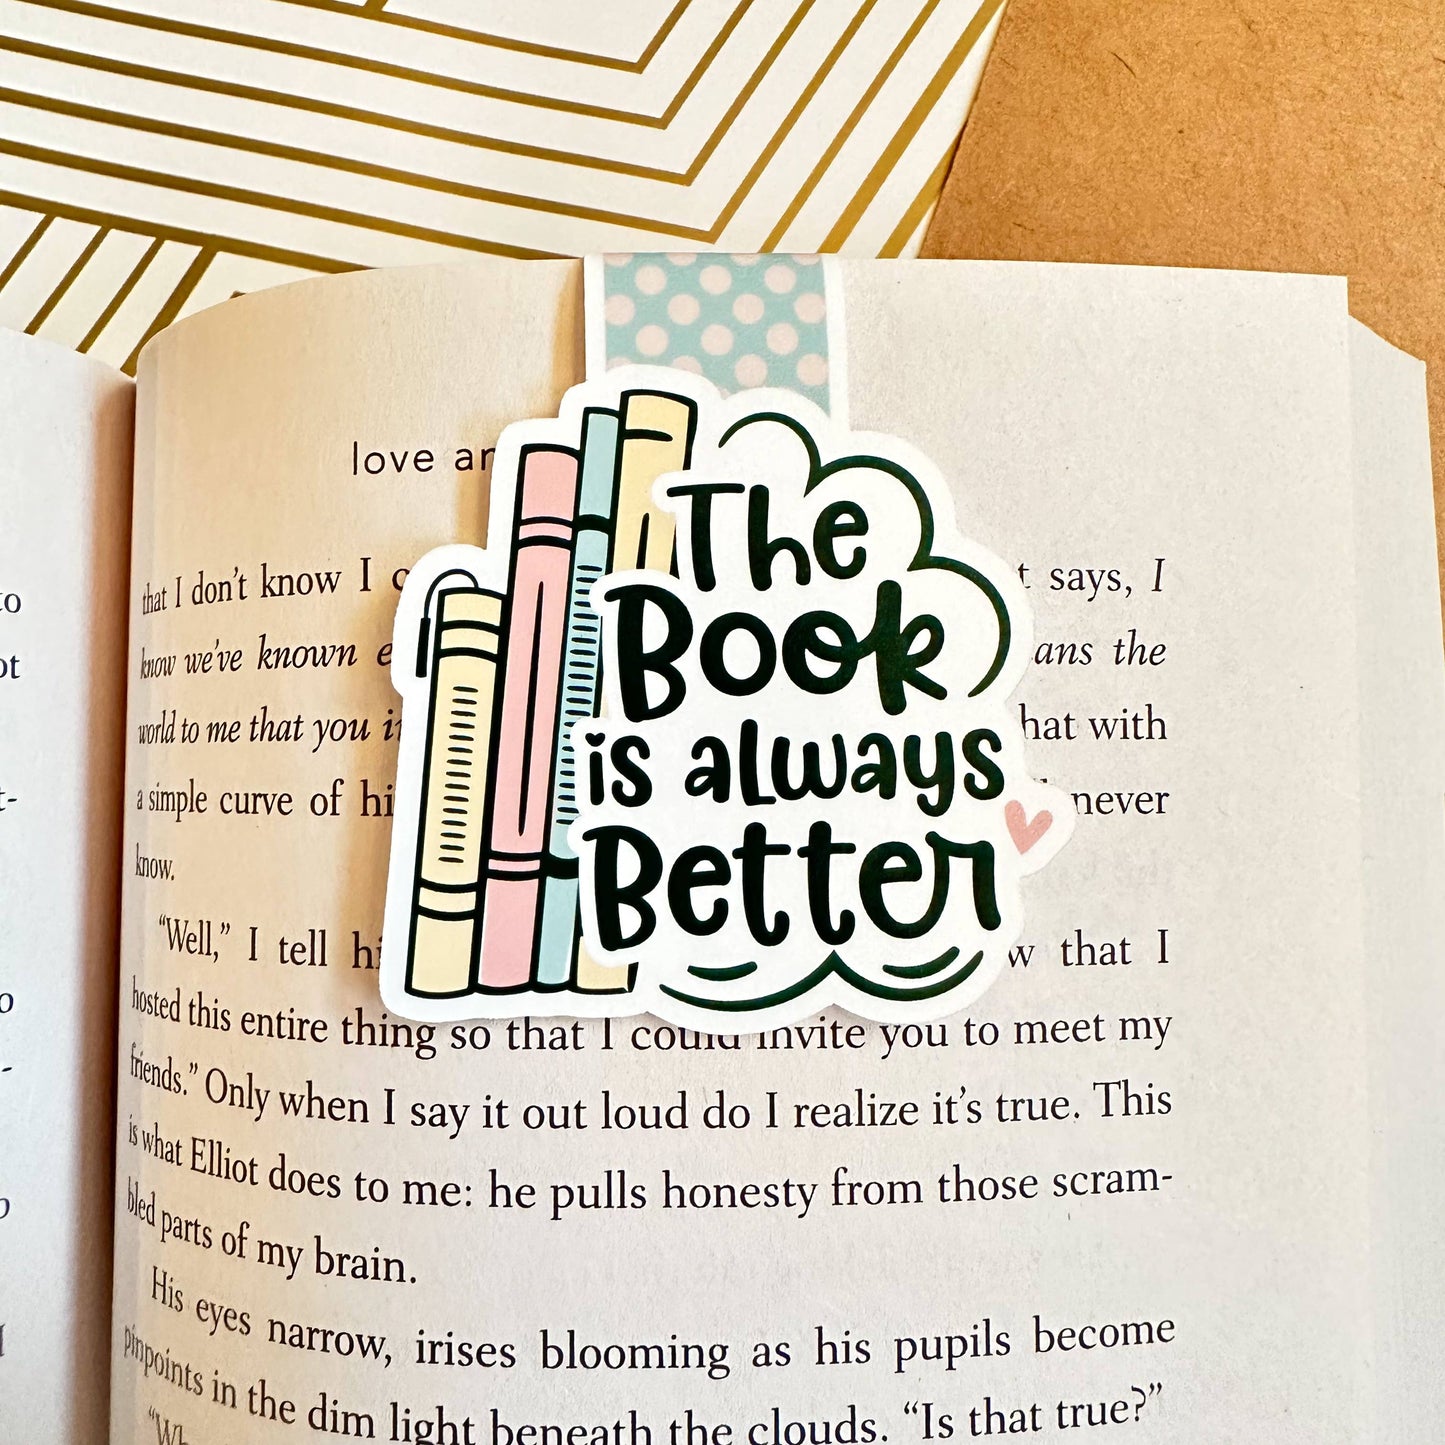 love an
The
Book
is always
Better
that I don't know I
t says, I
know we've known
ans the
world to me that you
hat with
a simple curve of hi
never
know.
"Well," I tell hi
w that I
hosted this entire thing so that I could invite you to meet my
friends." Only when I say it out loud do I realize it's true. This
is what Elliot does to me: he pulls honesty from those scram-
bled parts of my brain.
His eyes narrow, irises blooming as his pupils become
pinpoints in the dim light beneath the clouds. "Is that true?"